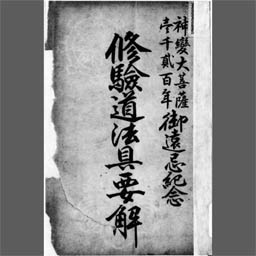 神變大菩薩
壱千貳百年御遠忌紀念
修驗道法具要解